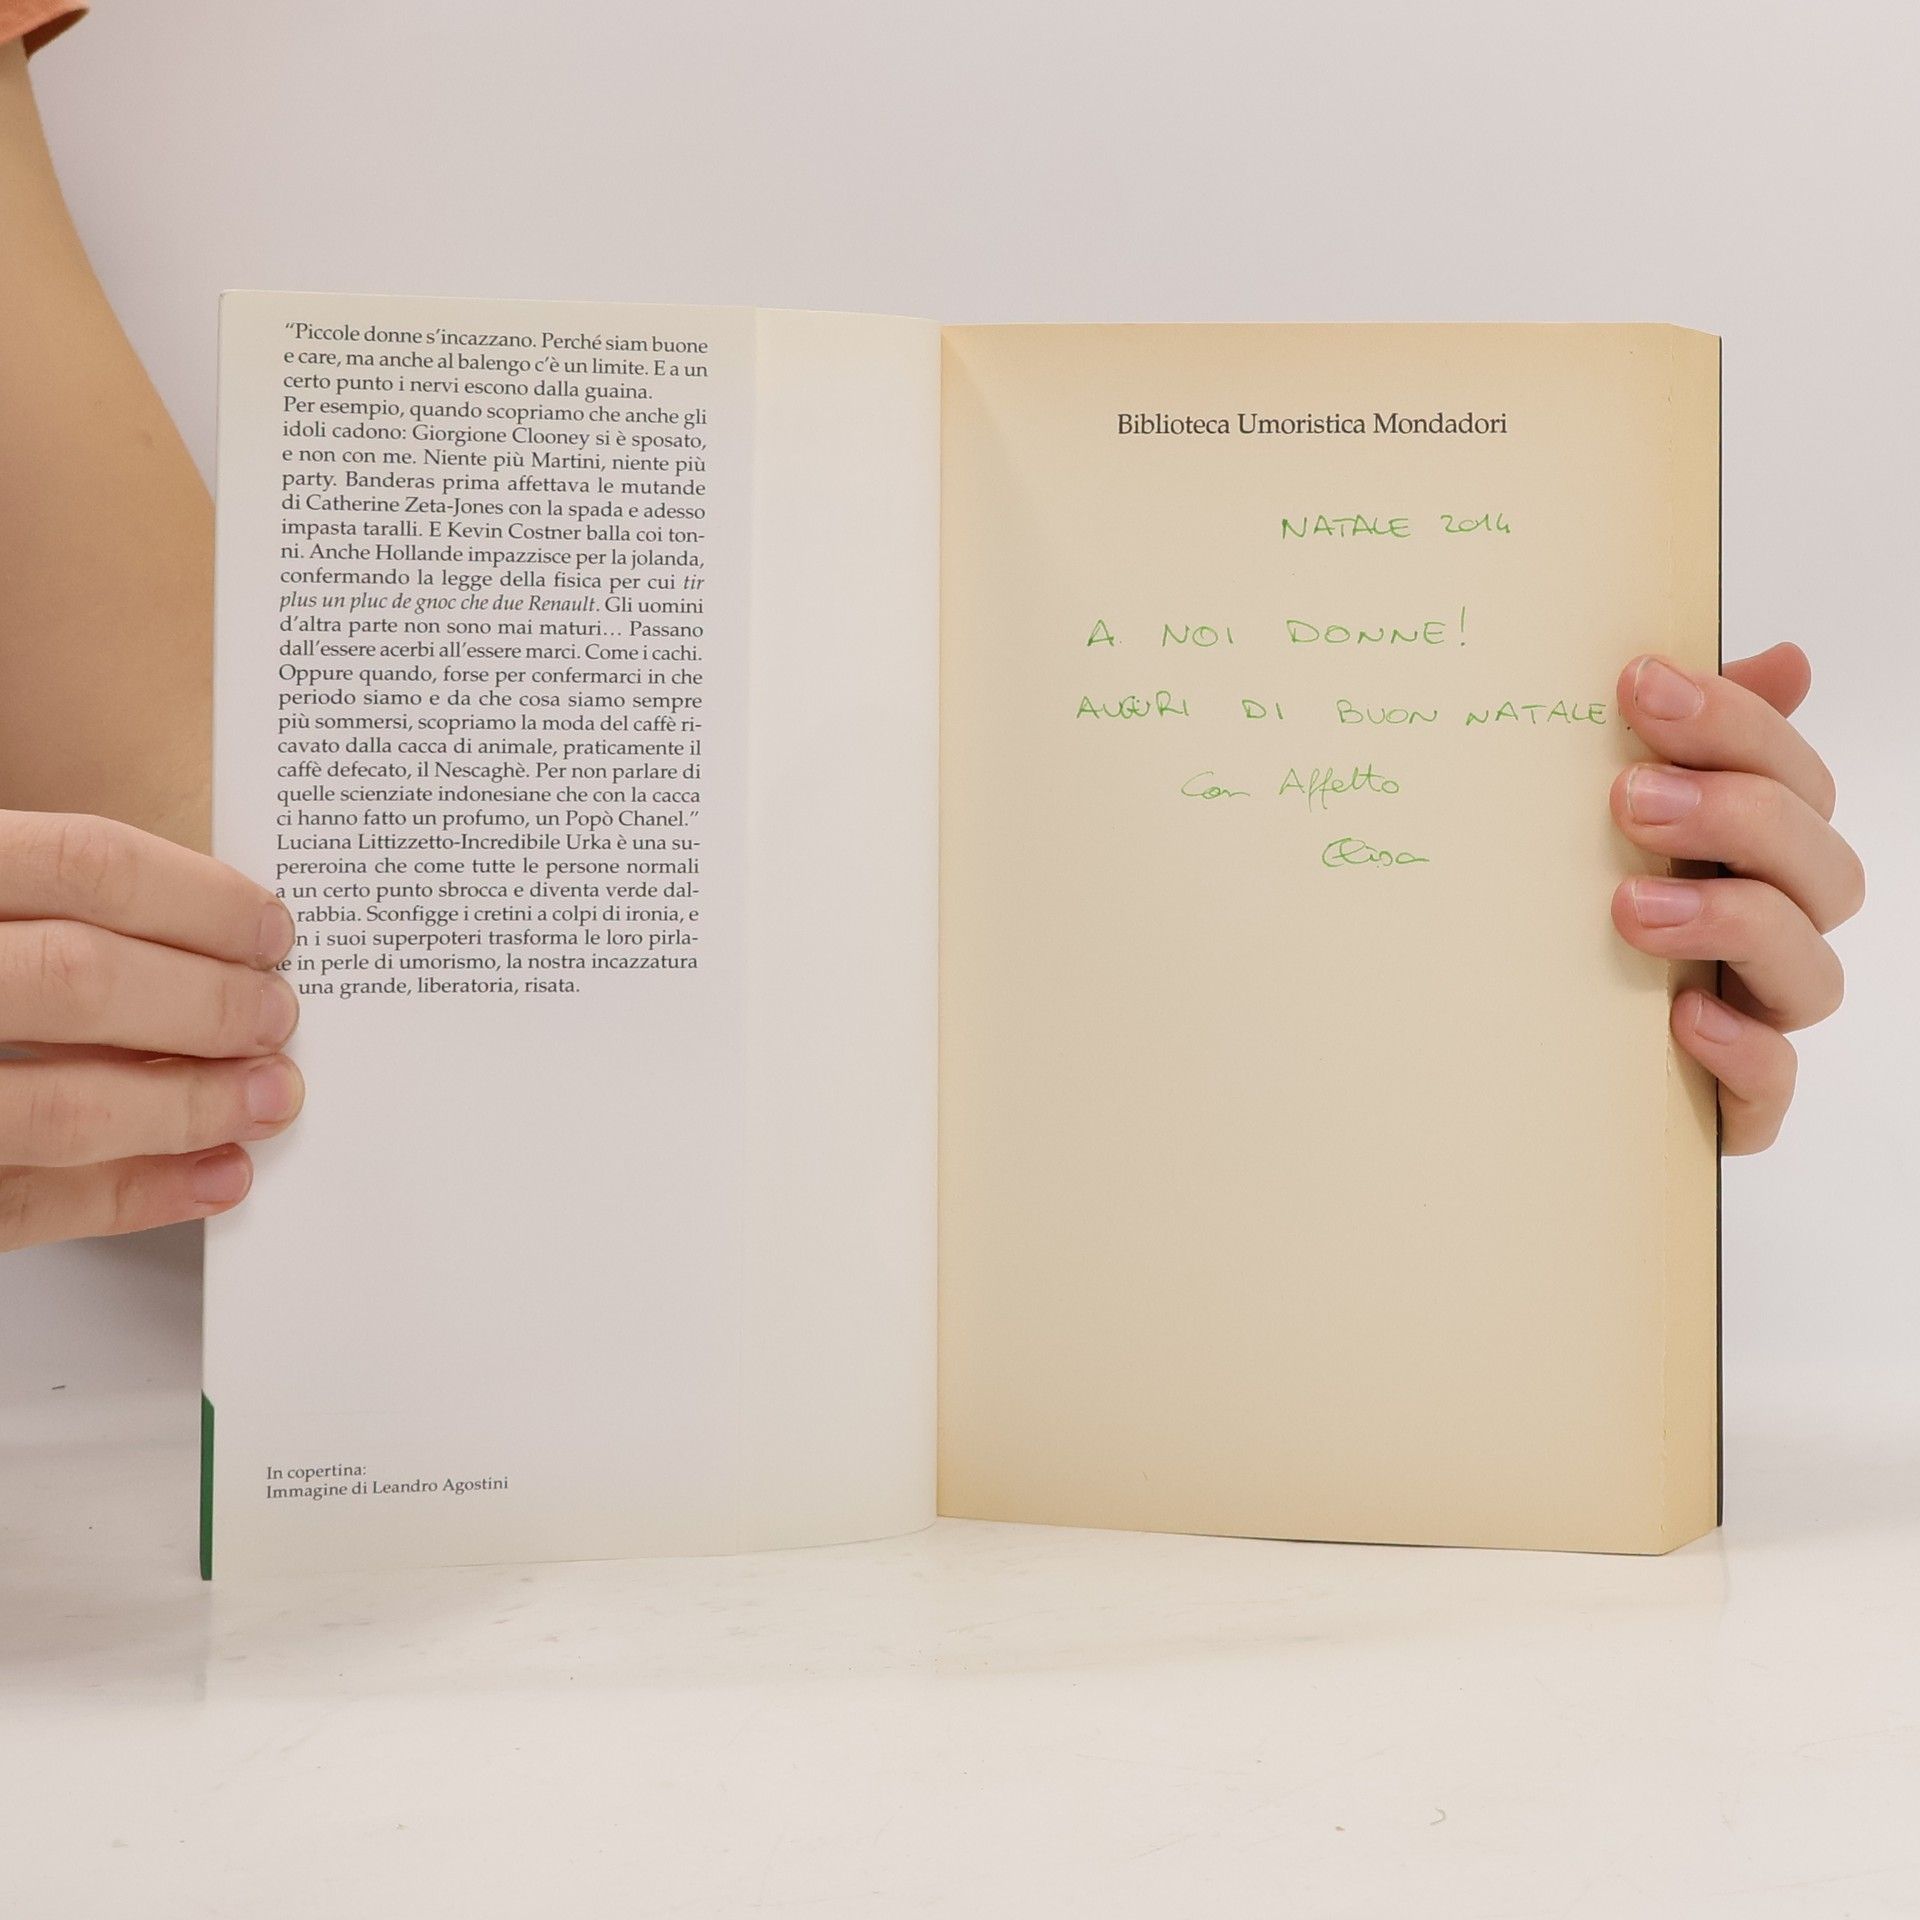 “Piccole donne s’incazzano. Perché siam buone
e care, ma anche al balengo c’è un limite. E a un
certo punto i nervi escono dalla guaina.
Per esempio, quando scopriamo che anche gli
idoli cadono: Giorgione Clooney si è sposato,
e non con me. Niente più Martini, niente più
party. Banderas prima affettava le mutande
di Catherine Zeta-Jones con la spada e adesso
impasta taralli. E Kevin Costner balla coi ton-
ni. Anche Hollande impazzisce per la jolanda,
confermando la legge della fisica per cui tir
plus un pluc de gnoc che due Renault. Gli uomini
d’altra parte non sono mai maturi… Passano
dall’essere acerbi all’essere marci. Come i cachi.
Oppure quando, forse per confermarci in che
periodo siamo e da che cosa siamo sempre
più sommersi, scopriamo la moda del caffè ri-
cavato dalla cacca di animale, praticamente il
caffè defecato, il Nescaghè. Per non parlare di
quelle scienziate indonesiane che con la cacca
ci hanno fatto un profumo, un Popò Chanel.”
Luciana Littizzetto-Incredibile Urka è una su-
pereroina che come tutte le persone normali
a un certo punto sbrocca e diventa verde dal-
rabbia. Sconfigge i cretini a colpi di ironia, e
i suoi superpoteri trasforma le loro pirla-
te in perle di umorismo, la nostra incazzatura
una grande, liberatoria, risata.
In copertina:
Immagine di Leandro Agostini
Biblioteca Umoristica Mondadori
NATALE 2014
A NOI DONNE!
AUGURI DI BUON NATALE!
Con Affetto
Elisa